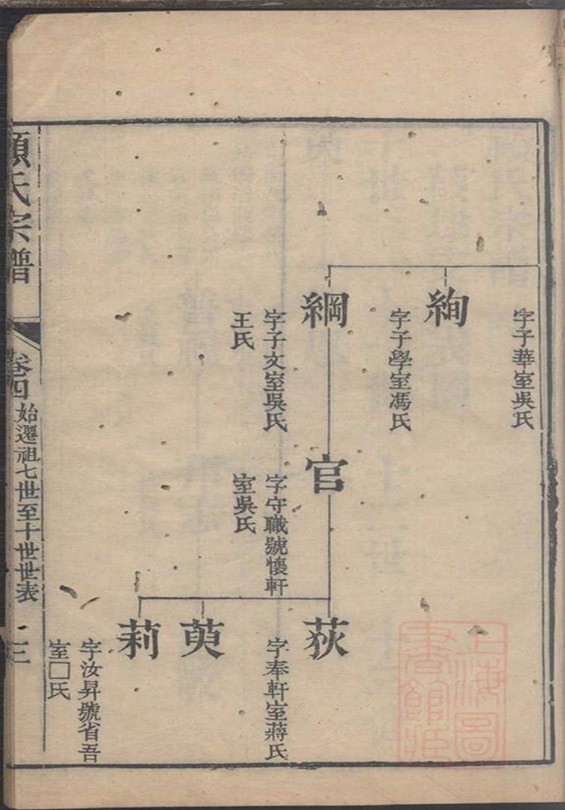 字子華室吳氏
絢
字子學室馮氏
綱
字子文室吳氏
王氏
官
字守職號懷軒
室吳氏
荻
字奉軒室蔣氏
萸
莉
字汝昇號省吾
室□氏
顧氏宗譜
卷四
始遷祖七世至十世世表
三
上海圖書館藏